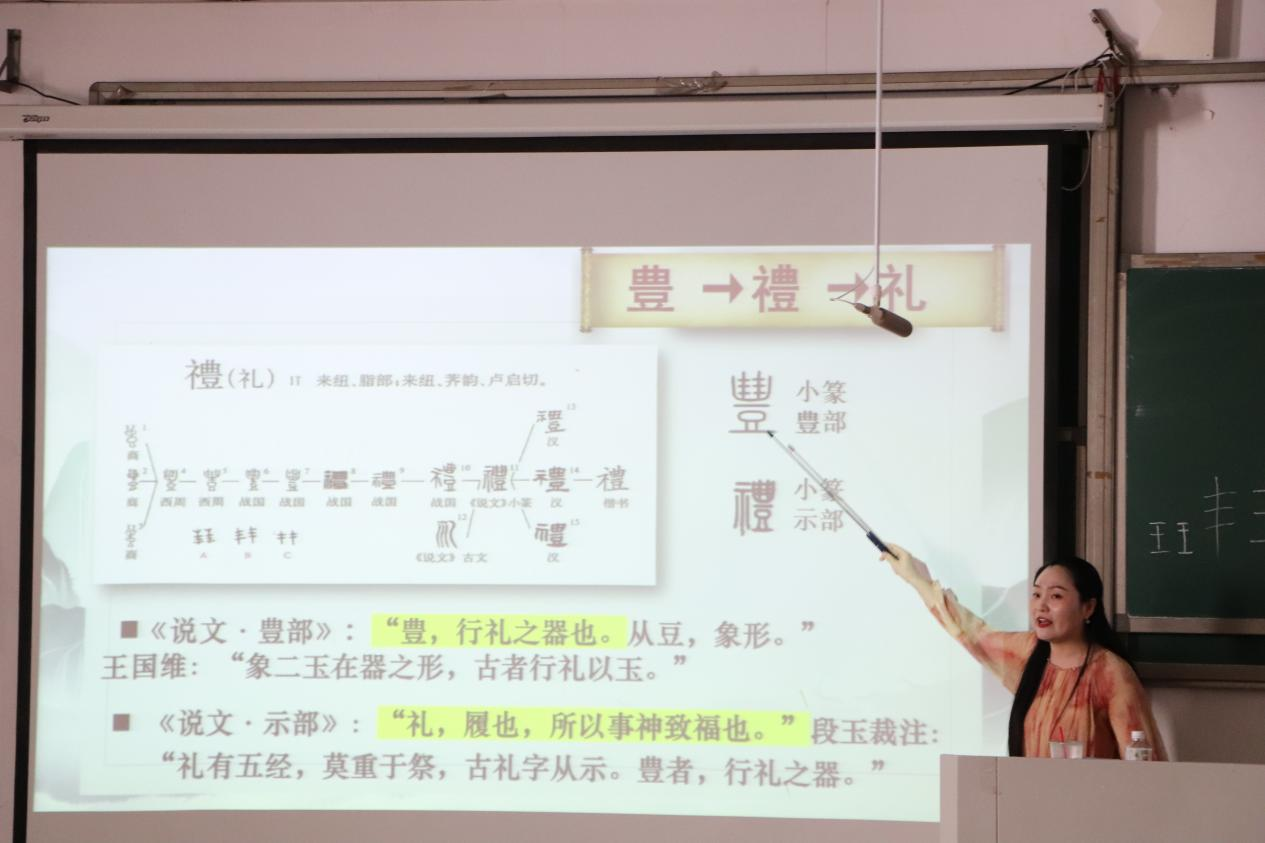 豊→禮→礼
禮(礼) lǐ 来纽、脂部;来纽、荠韵、卢启切。
13
汉
1
商
2 4 5 6 7 8 9 10 11 14
商 西周 西周 战国 战国 战国 战国 战国 《说文》小篆 汉 楷书
禮
3
商
A B C
12
《说文》古文
15
汉
豊 小篆
豊部
禮 小篆
示部
■《说文·豊部》:“豊,行礼之器也。从豆,象形。”
王国维:“象二玉在器之形,古者行礼以玉。”
■《说文·示部》:“礼,履也,所以事神致福也。”段玉裁注:
“礼有五经,莫重于祭,古礼字从示。豊者,行礼之器。”